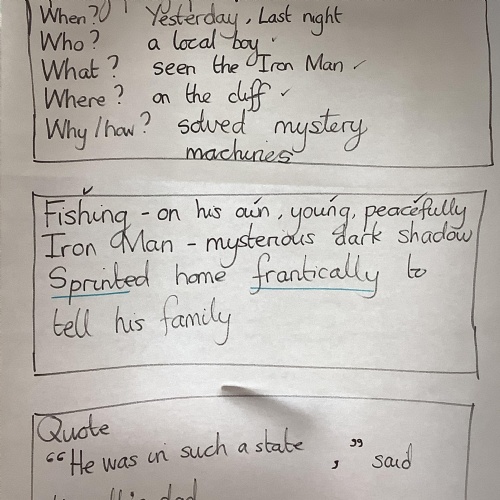 When? Yesterday, Last night
Who? a local boy
What? seen the Iron Man
Where? on the cliff
Why/how? solved mystery
machines
Fishing - on his own, young, peacefully
Iron Man - mysterious dark shadow
Sprinted home frantically to
tell his family
Quote
"He was in such a state , " said
dad